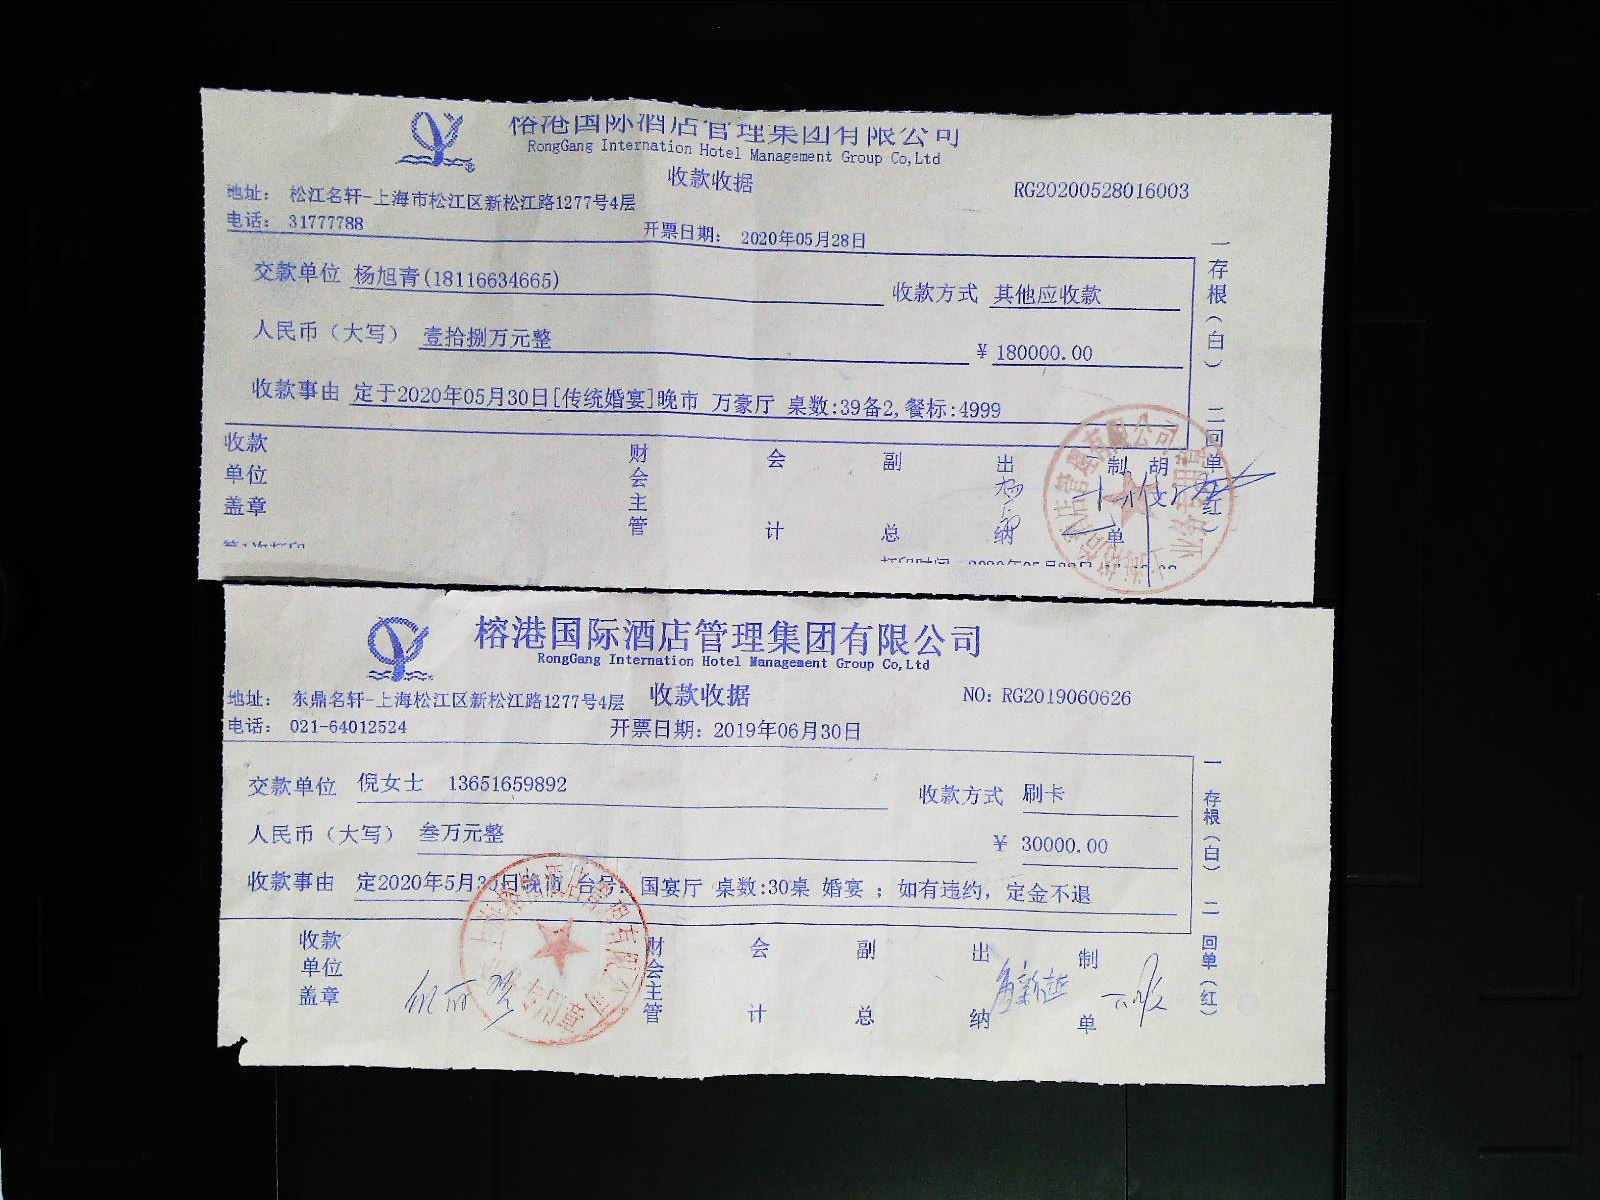 榕港国际酒店管理集团有限公司
RongGang Internation Hotel Management Group Co,Ltd
收款收据
RG20200528016003
地址： 松江名轩-上海市松江区新松江路1277号4层
电话： 31777788
开票日期： 2020年05月28日
交款单位 杨旭青(18116634665)
收款方式 其他应收款
人民币（大写） 壹拾捌万元整
¥ 180000.00
收款事由 定于2020年05月30日[传统婚宴]晚市 万豪厅 桌数:39备2,餐标:4999
一存根（白） 二回单（红）
收款单位盖章
财会主管
会计
副总
出纳
制单
胡
榕港国际酒店管理集团有限公司
RongGang Internation Hotel Management Group Co,Ltd
收款收据
NO: RG2019060626
地址： 东鼎名轩-上海松江区新松江路1277号4层
电话： 021-64012524
开票日期： 2019年06月30日
交款单位 倪女士 13651659892
收款方式 刷卡
人民币（大写） 叁万元整
¥ 30000.00
收款事由 定2020年5月30日晚市 台号: 国宴厅 桌数:30桌 婚宴 ；如有违约，定金不退
一存根（白） 二回单（红）
收款单位盖章
财会主管
会计
副总
出纳
制单